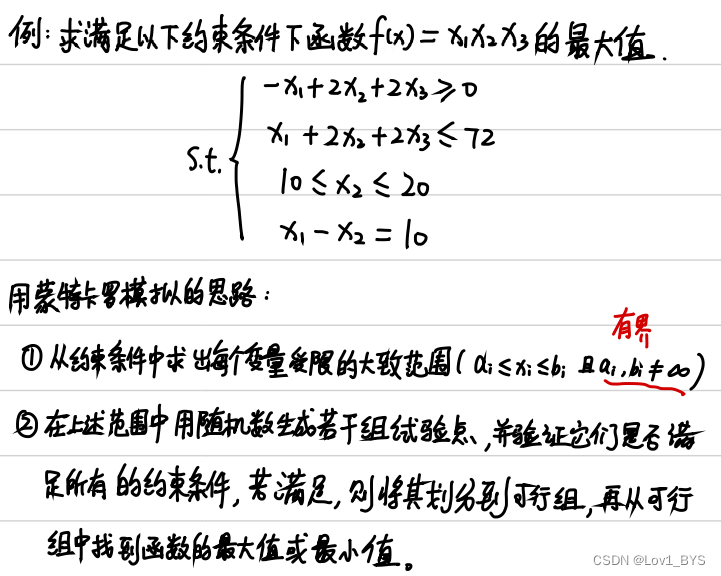 例: 求满足以下约束条件下函数f(x) = x₁x₂x₃的最大值.
-x₁+2x₂+2x₃⩾0
s.t. { x₁+2x₂+2x₃≤72
10≤x₂≤20
x₁-x₂=10
用蒙特卡罗模拟的思路:
有界
① 从约束条件中求出每个变量受限的大致范围( aᵢ≤xᵢ≤bᵢ 且aᵢ,bᵢ≠∞)
② 在上述范围中用随机数生成若干组试验点、并验证它们是否满
足所有的约束条件, 若满足, 则将其划分到可行组, 再从可行
组中找到函数的最大值或最小值。
CSDN @Lov1_BYS